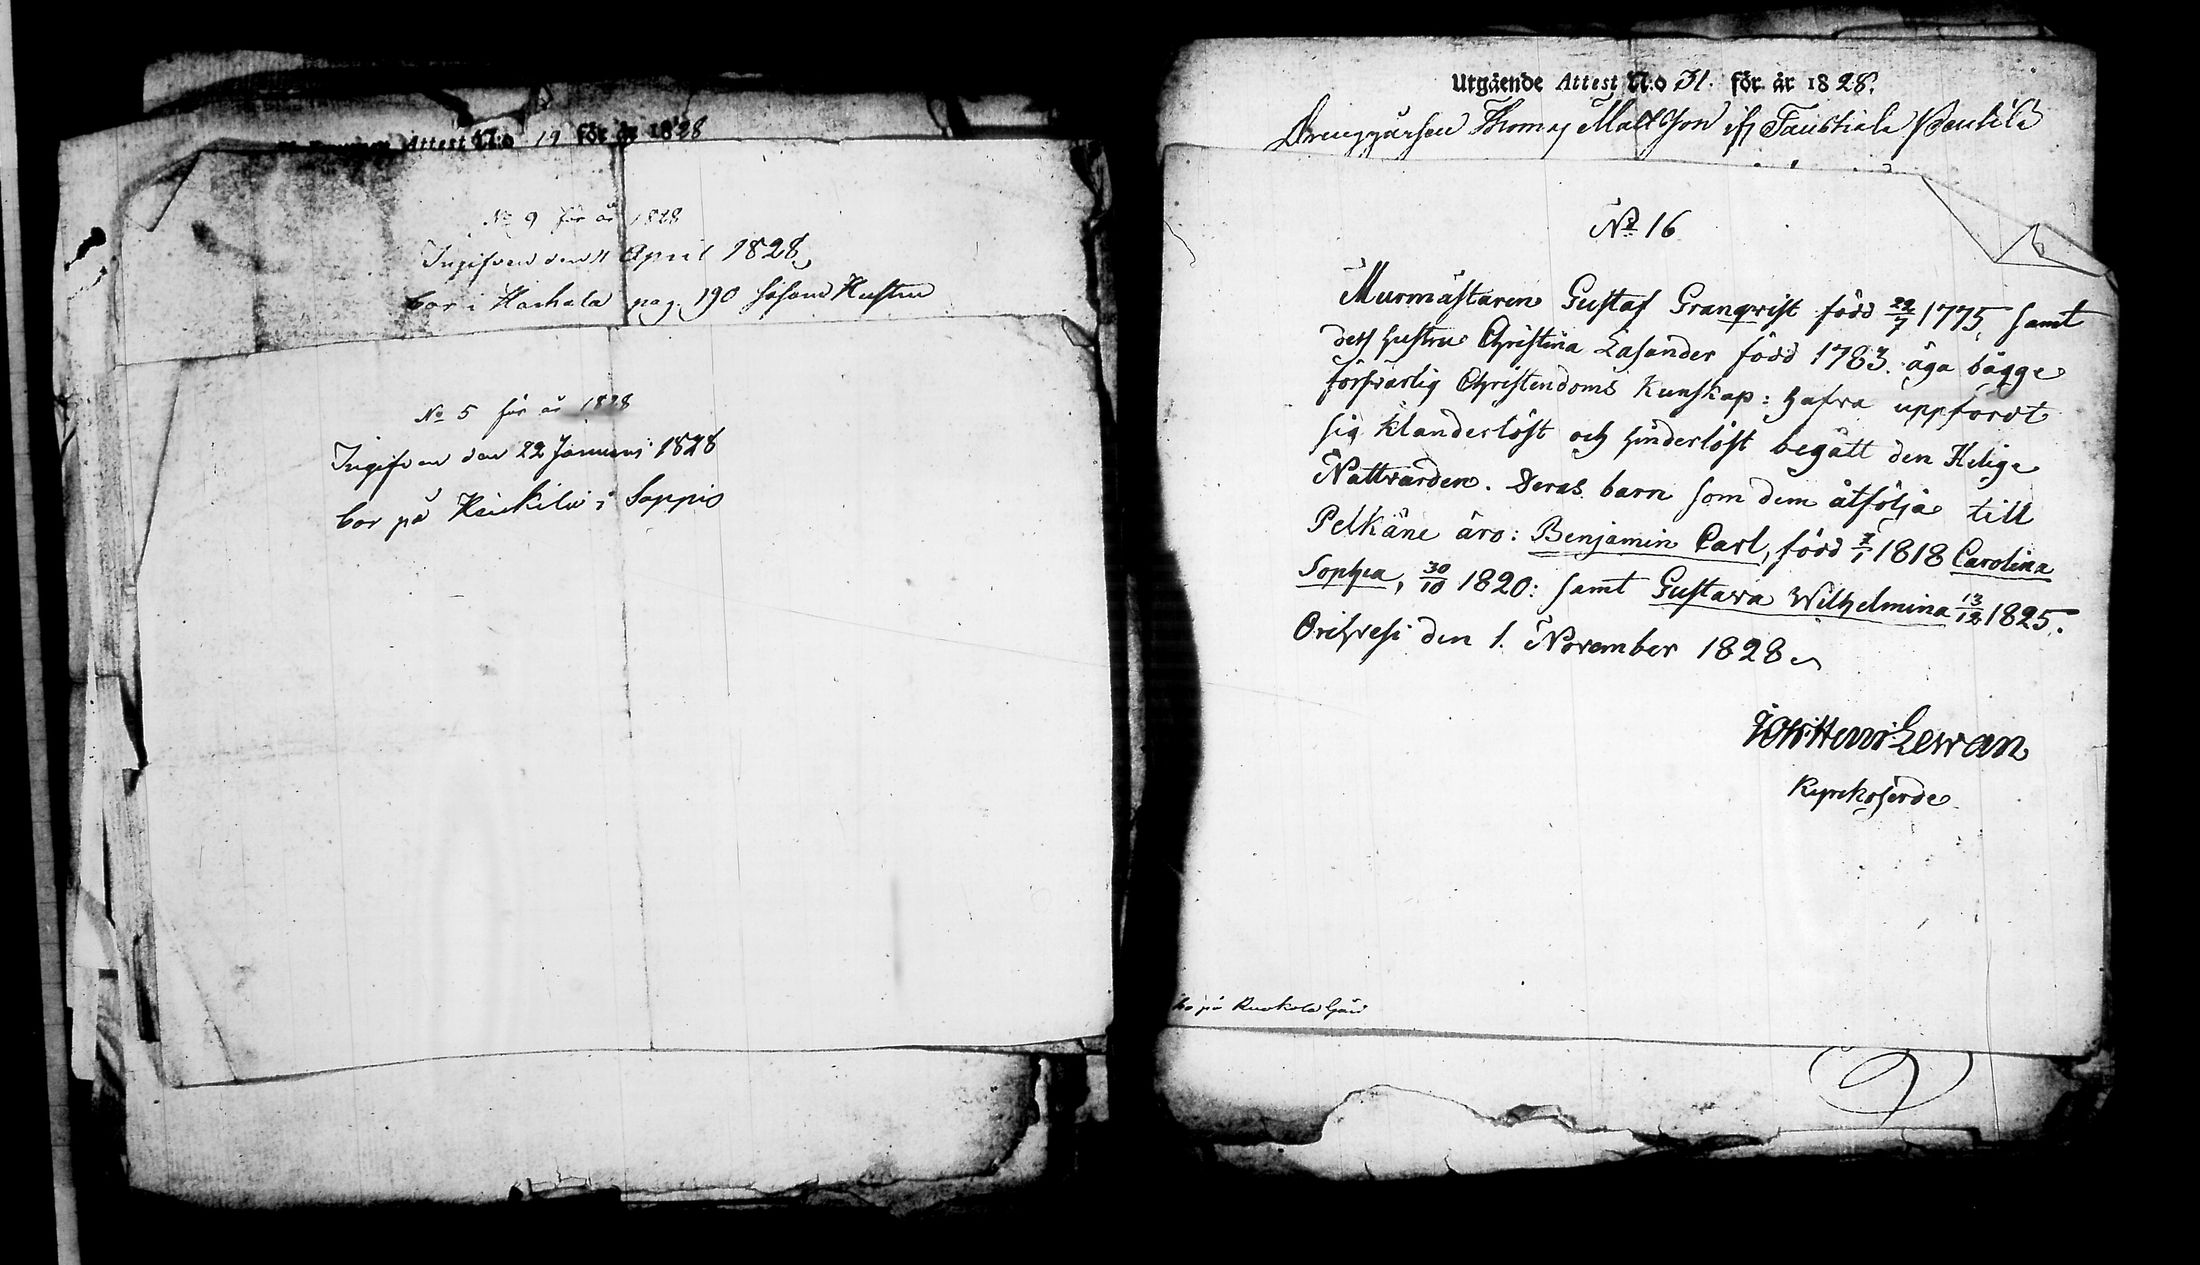 Attest N:o 19 för år 1828
No 9 för år 1828
Ingifven den 11 April 1828
bor i Harhala pag. 190 såsom Hustru
No 5 för år 1828
Ingifven den 22 Januari 1828
bor på Kaukila i Sappis
Utgående Attest N:o 31. för år 1828.
Drenggårsen Thomas Mattsson ifr
No 16
Murmästaren Gustaf Granqvist född 22/7 1775, samt
dess hustru Christina Lasander född 1783. äga bägge
försvarlig Christendoms Kunskap: hafva uppfördt
sig klanderlöst och hinderlöst begått den Helige
Nattvarden. Deras barn som dem åtfölja till
Pelkäne äro: Benjamin Carl, född 7/1 1818 Carolina
Sophia, 30/10 1820: samt Gustava Wilhelmina 13/12 1825.
Orihvesi den 1. November 1828
Joh: Henr: Lewan
Kyrkoherde
bo på Ruokola Gård